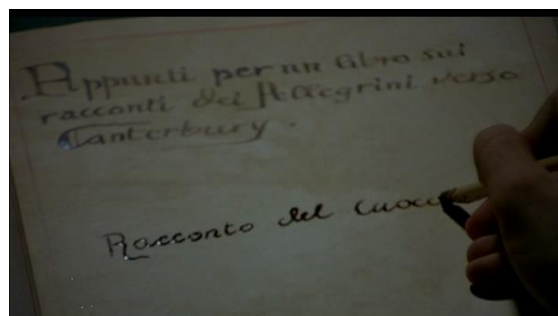 Appunti per un libro sui
racconti dei Pellegrini verso
Canterbury.
Racconto del Cuoco